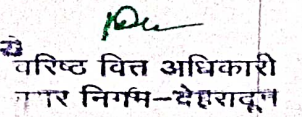 वरिष्ठ वित्त अधिकारी
नगर निगम-देहरादून